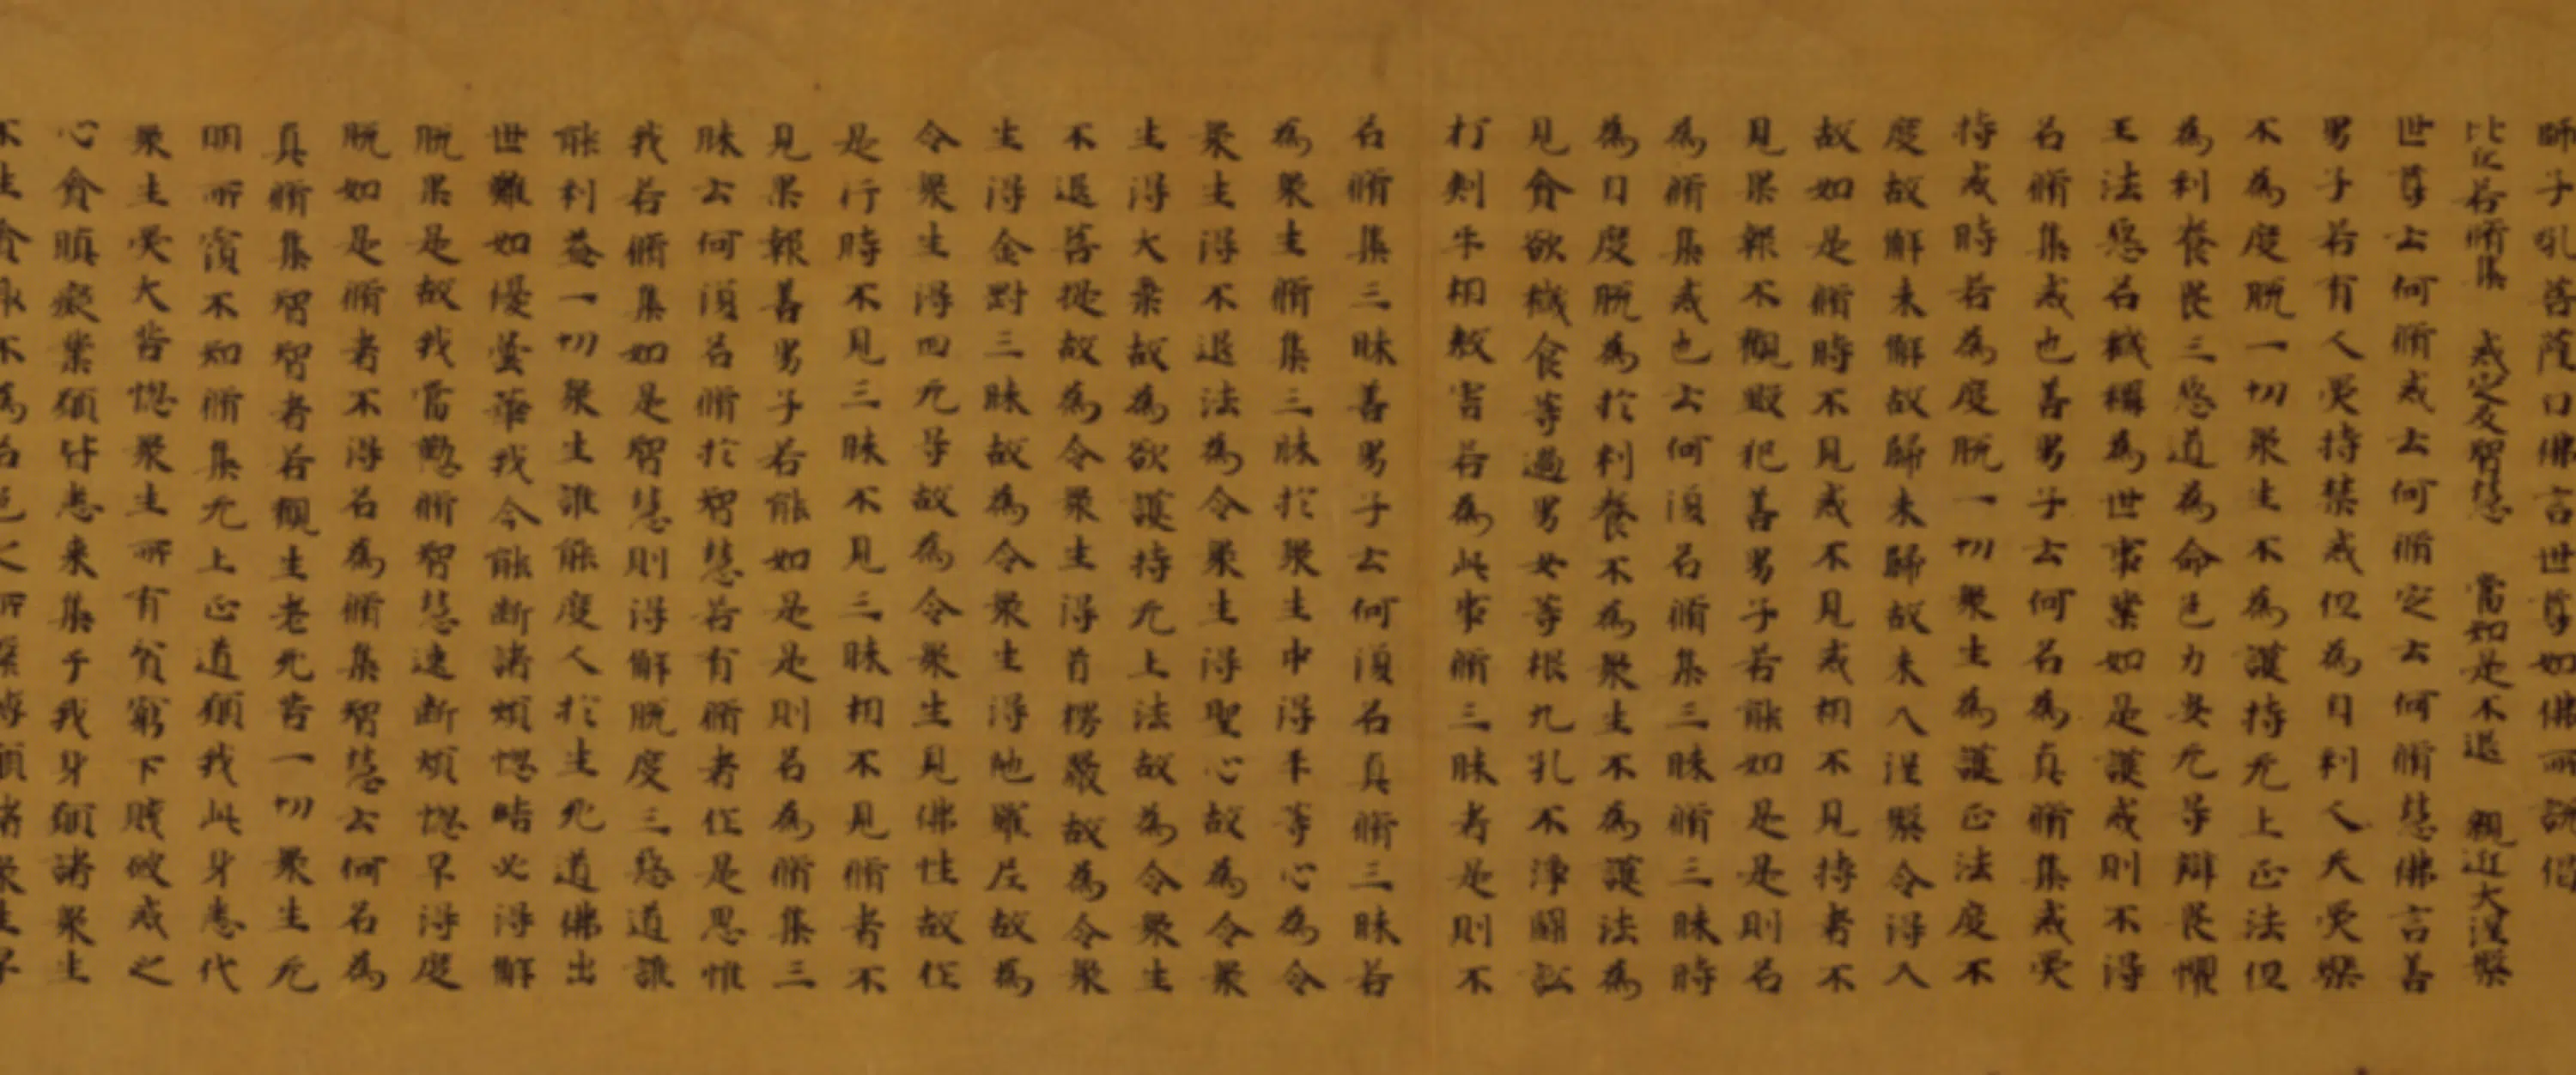 師子吼菩薩曰佛言世尊如佛所說偈
比丘若脩集 戒定及智慧 當如是不退 親近大涅槃
世尊云何脩戒云何脩定云何脩慧佛言善
男子若有人受持禁戒但為自利人天受樂
不為度脫一切衆生不為護持无上正法但
為利養畏三惡道為命色力安无㝵辯畏懼
王法惡名穢稱為世事業如是護戒則不得
名脩集戒也善男子云何名為真脩集戒受
持戒時若為度脫一切衆生為護正法度不
度故解未解故歸未歸故未入涅槃令得入
故如是脩時不見戒不見戒相不見持者不
見果報不觀毀犯善男子若能如是是則名
為脩集戒也云何復名脩集三昧脩三昧時
為自度脫為於利養不為衆生不為護法為
見貪欲穢食等過男女等根九孔不淨鬪訟
打刾牛相煞害若為此事脩三昧者是則不
名脩集三昧善男子云何復名真脩三昧若
為衆生脩集三昧於衆生中得平等心為令
衆生得不退法為令衆生得聖心故為令衆
生得大乘故為欲護持无上法故為令衆生
不退菩提故為令衆生得首楞嚴故為令衆
生得金剛三昧故為令衆生得陁羅尼故為
令衆生得四无㝵故為令衆生見佛性故作
是行時不見三昧不見三昧相不見脩者不
見果報善男子若能如是是則名為脩集三
昧云何復名脩於智慧若有脩者作是思惟
我若脩集如是智慧則得解脫度三惡道誰
能利益一切衆生誰能度人於生死道佛出
世難如優曇華我今能斷諸煩惱結必得解
脫果是故我當勤脩智慧速斷煩惱早得度
脫如是脩者不得名為脩集智慧云何名為
真脩集智智者若觀生老死苦一切衆生无
明所覆不知脩集无上正道願我此身悉代
衆生受大苦惱衆生所有貧窮下賤破戒之
心貪瞋癡業願皆悉來集于我身願諸衆生
不生貪取不為名色之所繫縛願諸衆生早